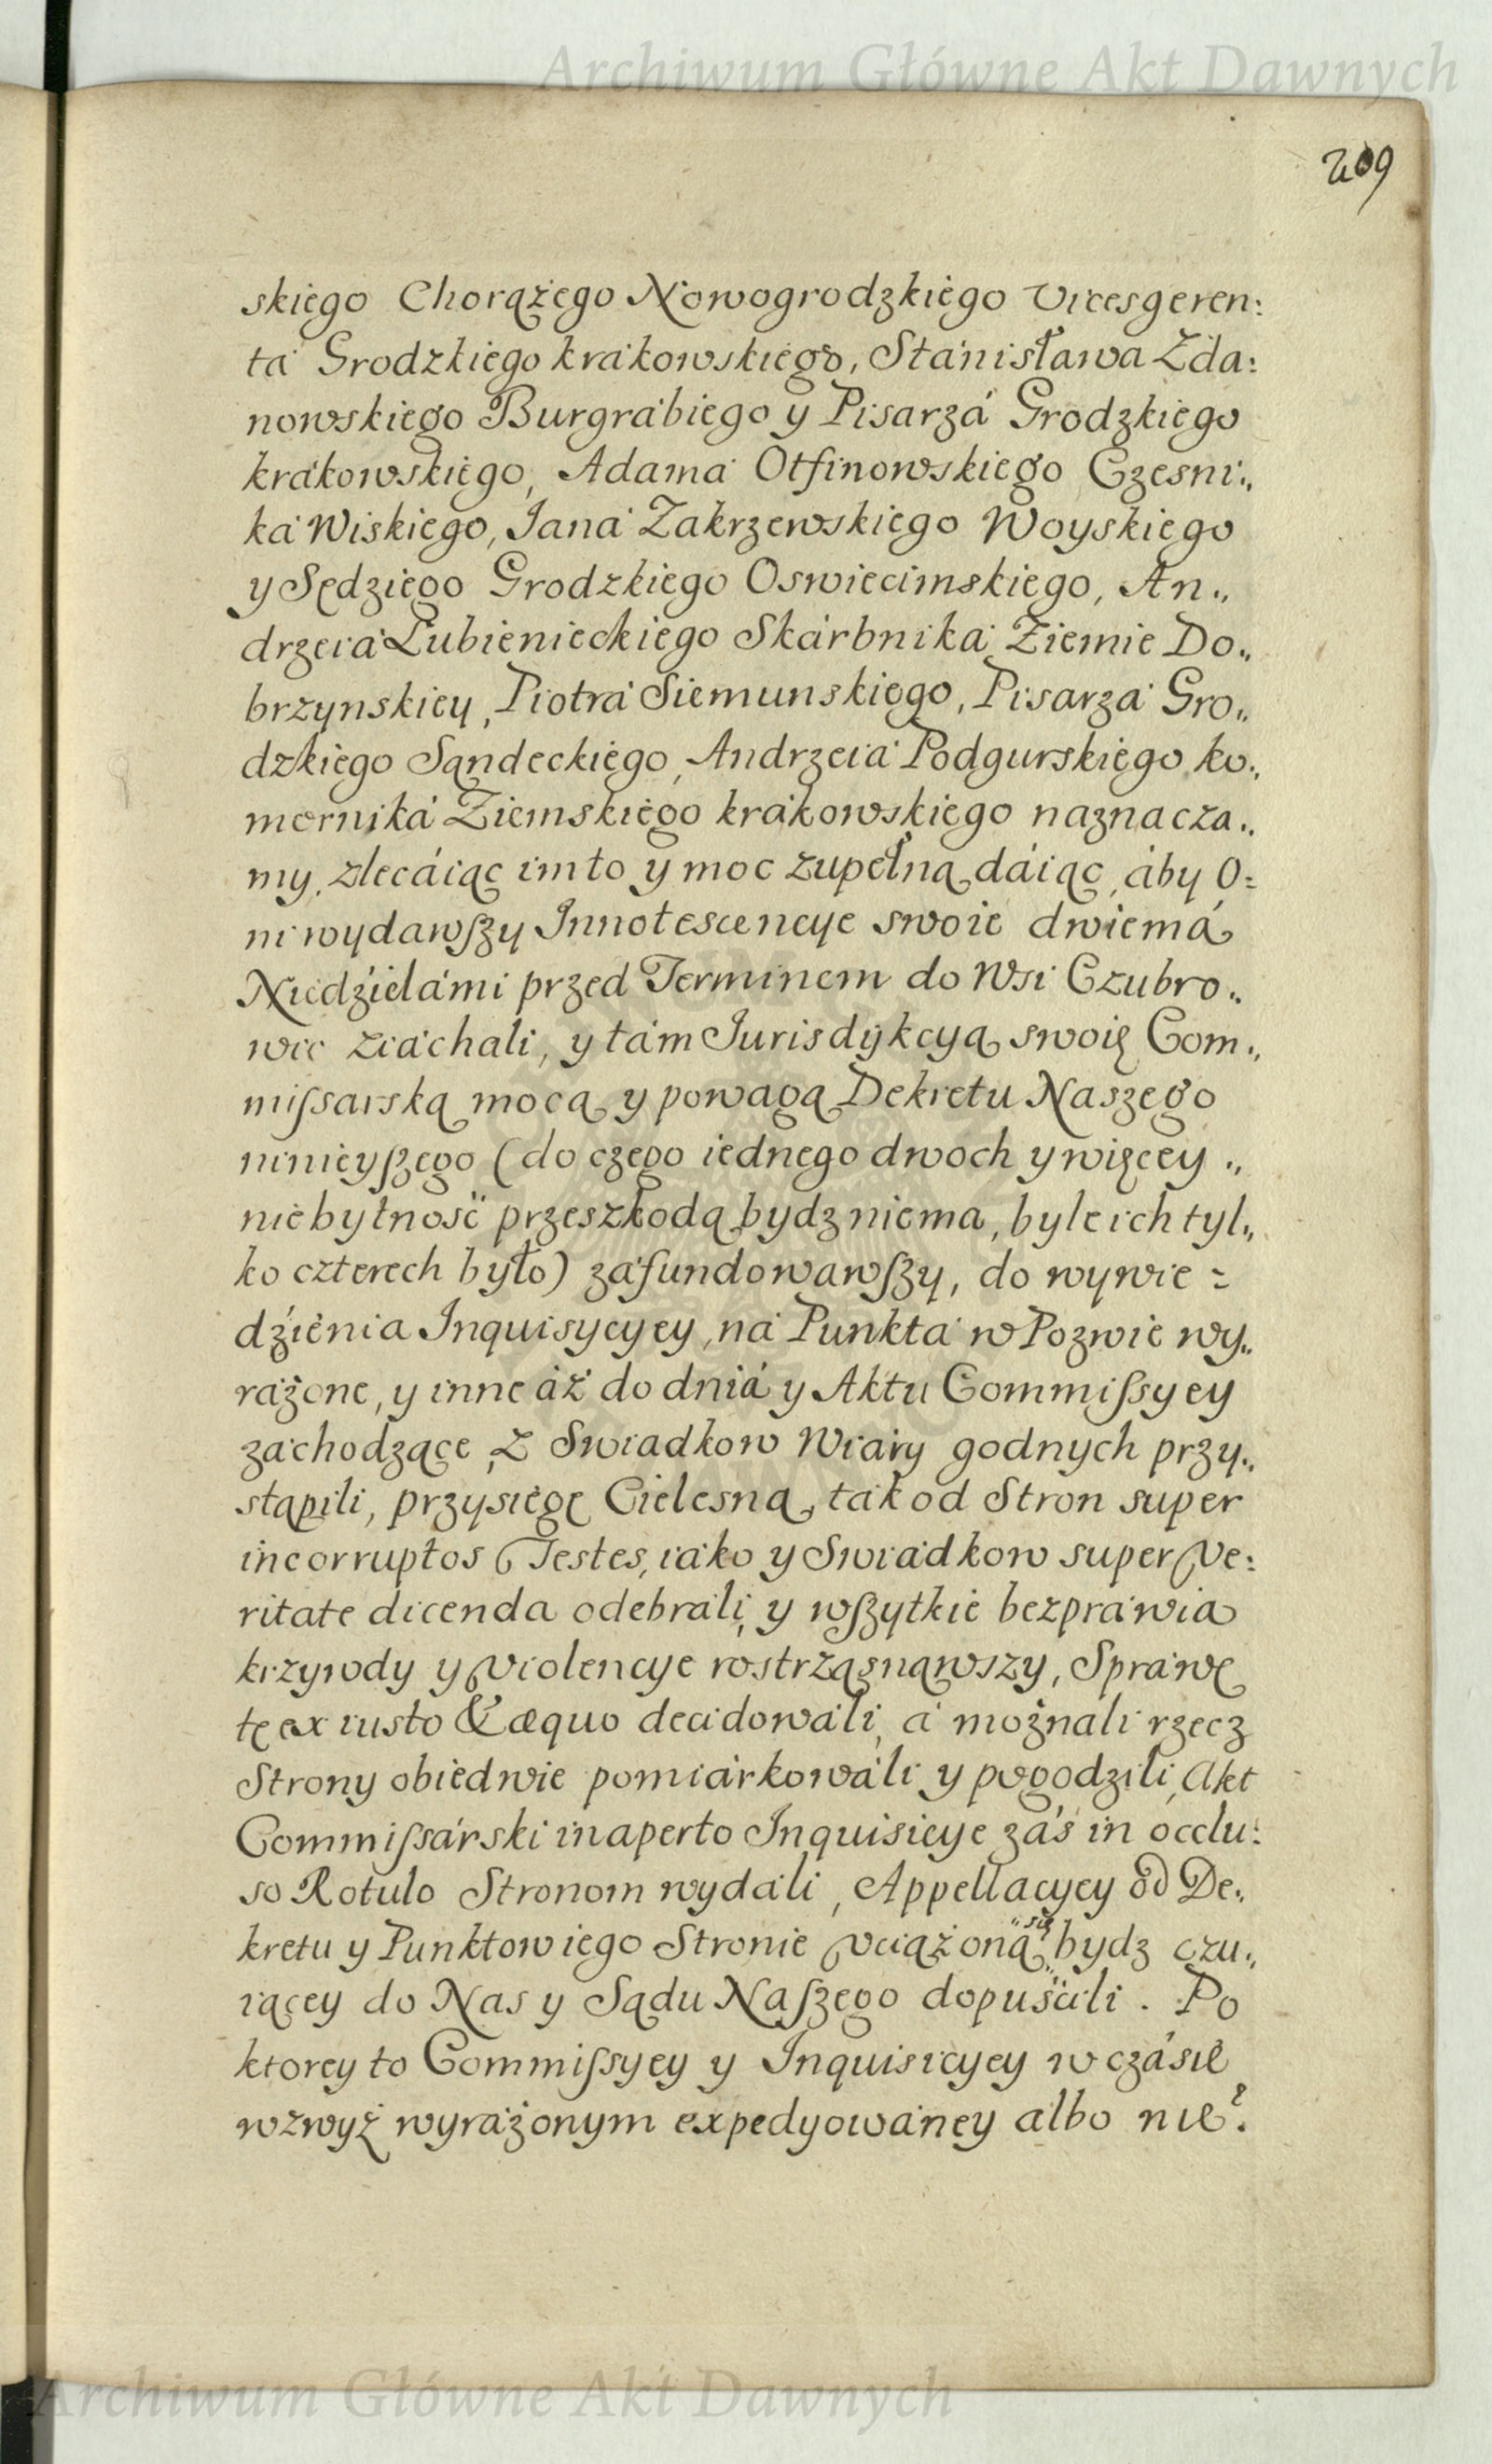 Archiwum Główne Akt Dawnych
209
skiego Chorążego Nowogrodzkiego Vicesgeren:
tá Grodzkiego krákowskiego, Stánisława Zda:
nowskiego Burgrábiego y Pisarzá Grodzkiego
krákowskiego, Adamá Otfinowskiego Czesni„
ká Wiskiego, Janá Zakrzewskiego Woyskiego
y Sędziego Grodzkiego Oswiecimskiego, An„
drzeiá Lubienieckiego Skárbniká Ziemie Do„
brzynskiey, Piotrá Siemunskiego, Pisarzá Gro„
dzkiego Sądeckiego, Andrzeiá Podgurskiego ko„
morniká Ziemskiego krákowskiego naznacza„
my, zlecáiąc im to y moc zupełną dáiąc, áby O=
ni wydawszy Innotescencye swoie dwiemá
Niedźielámi przed Terminem do Wsi Czubro„
wic ziáchali, y tám Jurisdykcyą swoię Com„
missarską mocą y powagą Dekretu Naszego
ninieyszego (do czego iednego dwoch y więcey „
niebytność przeszkodą bydz niema, byle ich tyl„
ko czterech było) záfundowawszy, do wywie=
dźienia Inquisycyey ná Punktá w Pozwie wy„
ráżone, y inne áż do dniá y Aktu Commissyey
záchodzące, z Swiadkow Wiáry godnych przy„
stąpili, przysięgę Cielesną ták od Stron super
incorruptos Testes, iáko y Swiádkow super Ve:
ritate dicenda odebráli, y wszytkie bezpráwia
krzywdy y violencye rostrząsnąwszy, Spráwę
tę ex iusto & æquo decidowáli, á możnali rzecz
Strony obiedwie pomiárkowáli y pogodzili, Akt
Commissárski in aperto Inquisicye záś in occlu:
so Rotulo Stronom wydáli, Appellacyey od De„
kretu y Punktow iego Stronie vciążoną się bydz czu„
iącey do Nas y Sądu Naszego dopuścili. Po
ktorey to Commissyey y Inquisicyey w czásie
wzwyż wyráżonym expedyowáney albo nie?
Archiwum Główne Akt Dawnych